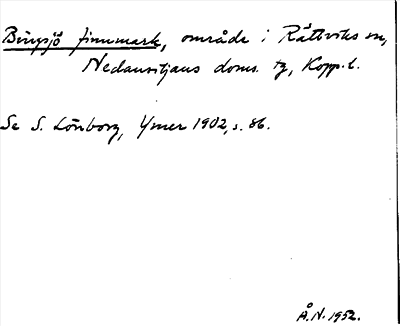 Bingsjö finnmark, område i Rättviks sn,
Nedansiljans doms. tg, Kopp. l.
Se S. Lönborg, Ymer 1902, s. 86.
Å.N. 1952.